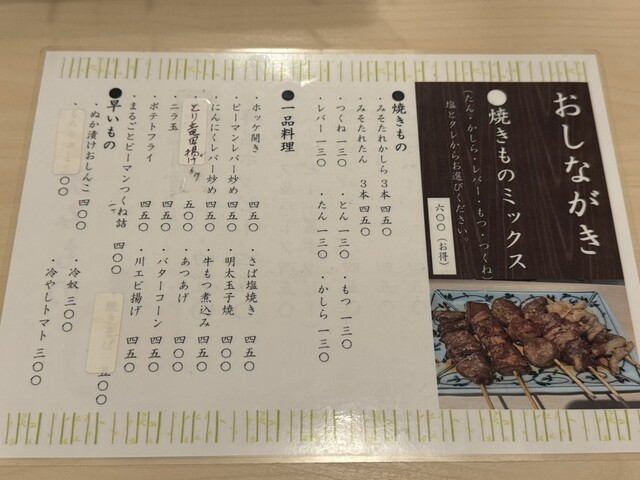 おしながき
●焼きものミックス
(たん・かしら・レバー・もつ・つくね)
塩とタレからお選びください。
六〇〇(お得)
●焼きもの
・みそたれかしら 3本 四五〇
・みそたれたん 3本 四五〇
・つくね 一三〇 ・とん 一三〇 ・もつ 一三〇
・レバー 一三〇 ・たん 一三〇 ・かしら 一三〇
●一品料理
・ホッケ開き 四五〇 ・さば塩焼き 四五〇
・ピーマンレバー炒め 四五〇 ・明太玉子焼 四〇〇
・にんにくレバー炒め 四五〇 ・牛もつ煮込み 四五〇
・とり竜田揚げ 五〇〇 ・あつあげ 四〇〇
・ニラ玉 四五〇 ・バターコーン 四五〇
・ポテトフライ 四五〇 ・川エビ揚げ 四五〇
・まるごとピーマンつくね詰 四〇〇
五〇〇
●早いもの
・ぬか漬けおしんこ 四〇〇 ・冷奴 三〇〇
〇〇 ・冷やしトマト 三〇〇